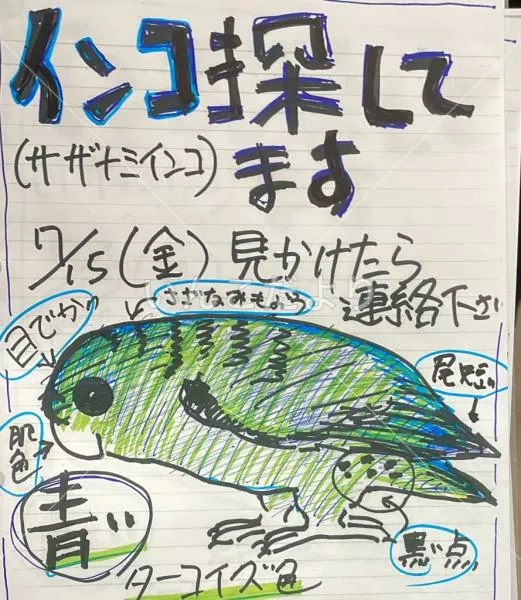 インコ探して
ます
(サザナミインコ)
7/15(金) 見かけたら
連絡下さ
さざなみもよう
目でかっ
尾短い
肌色
青い
黒い点
ターコイズ色